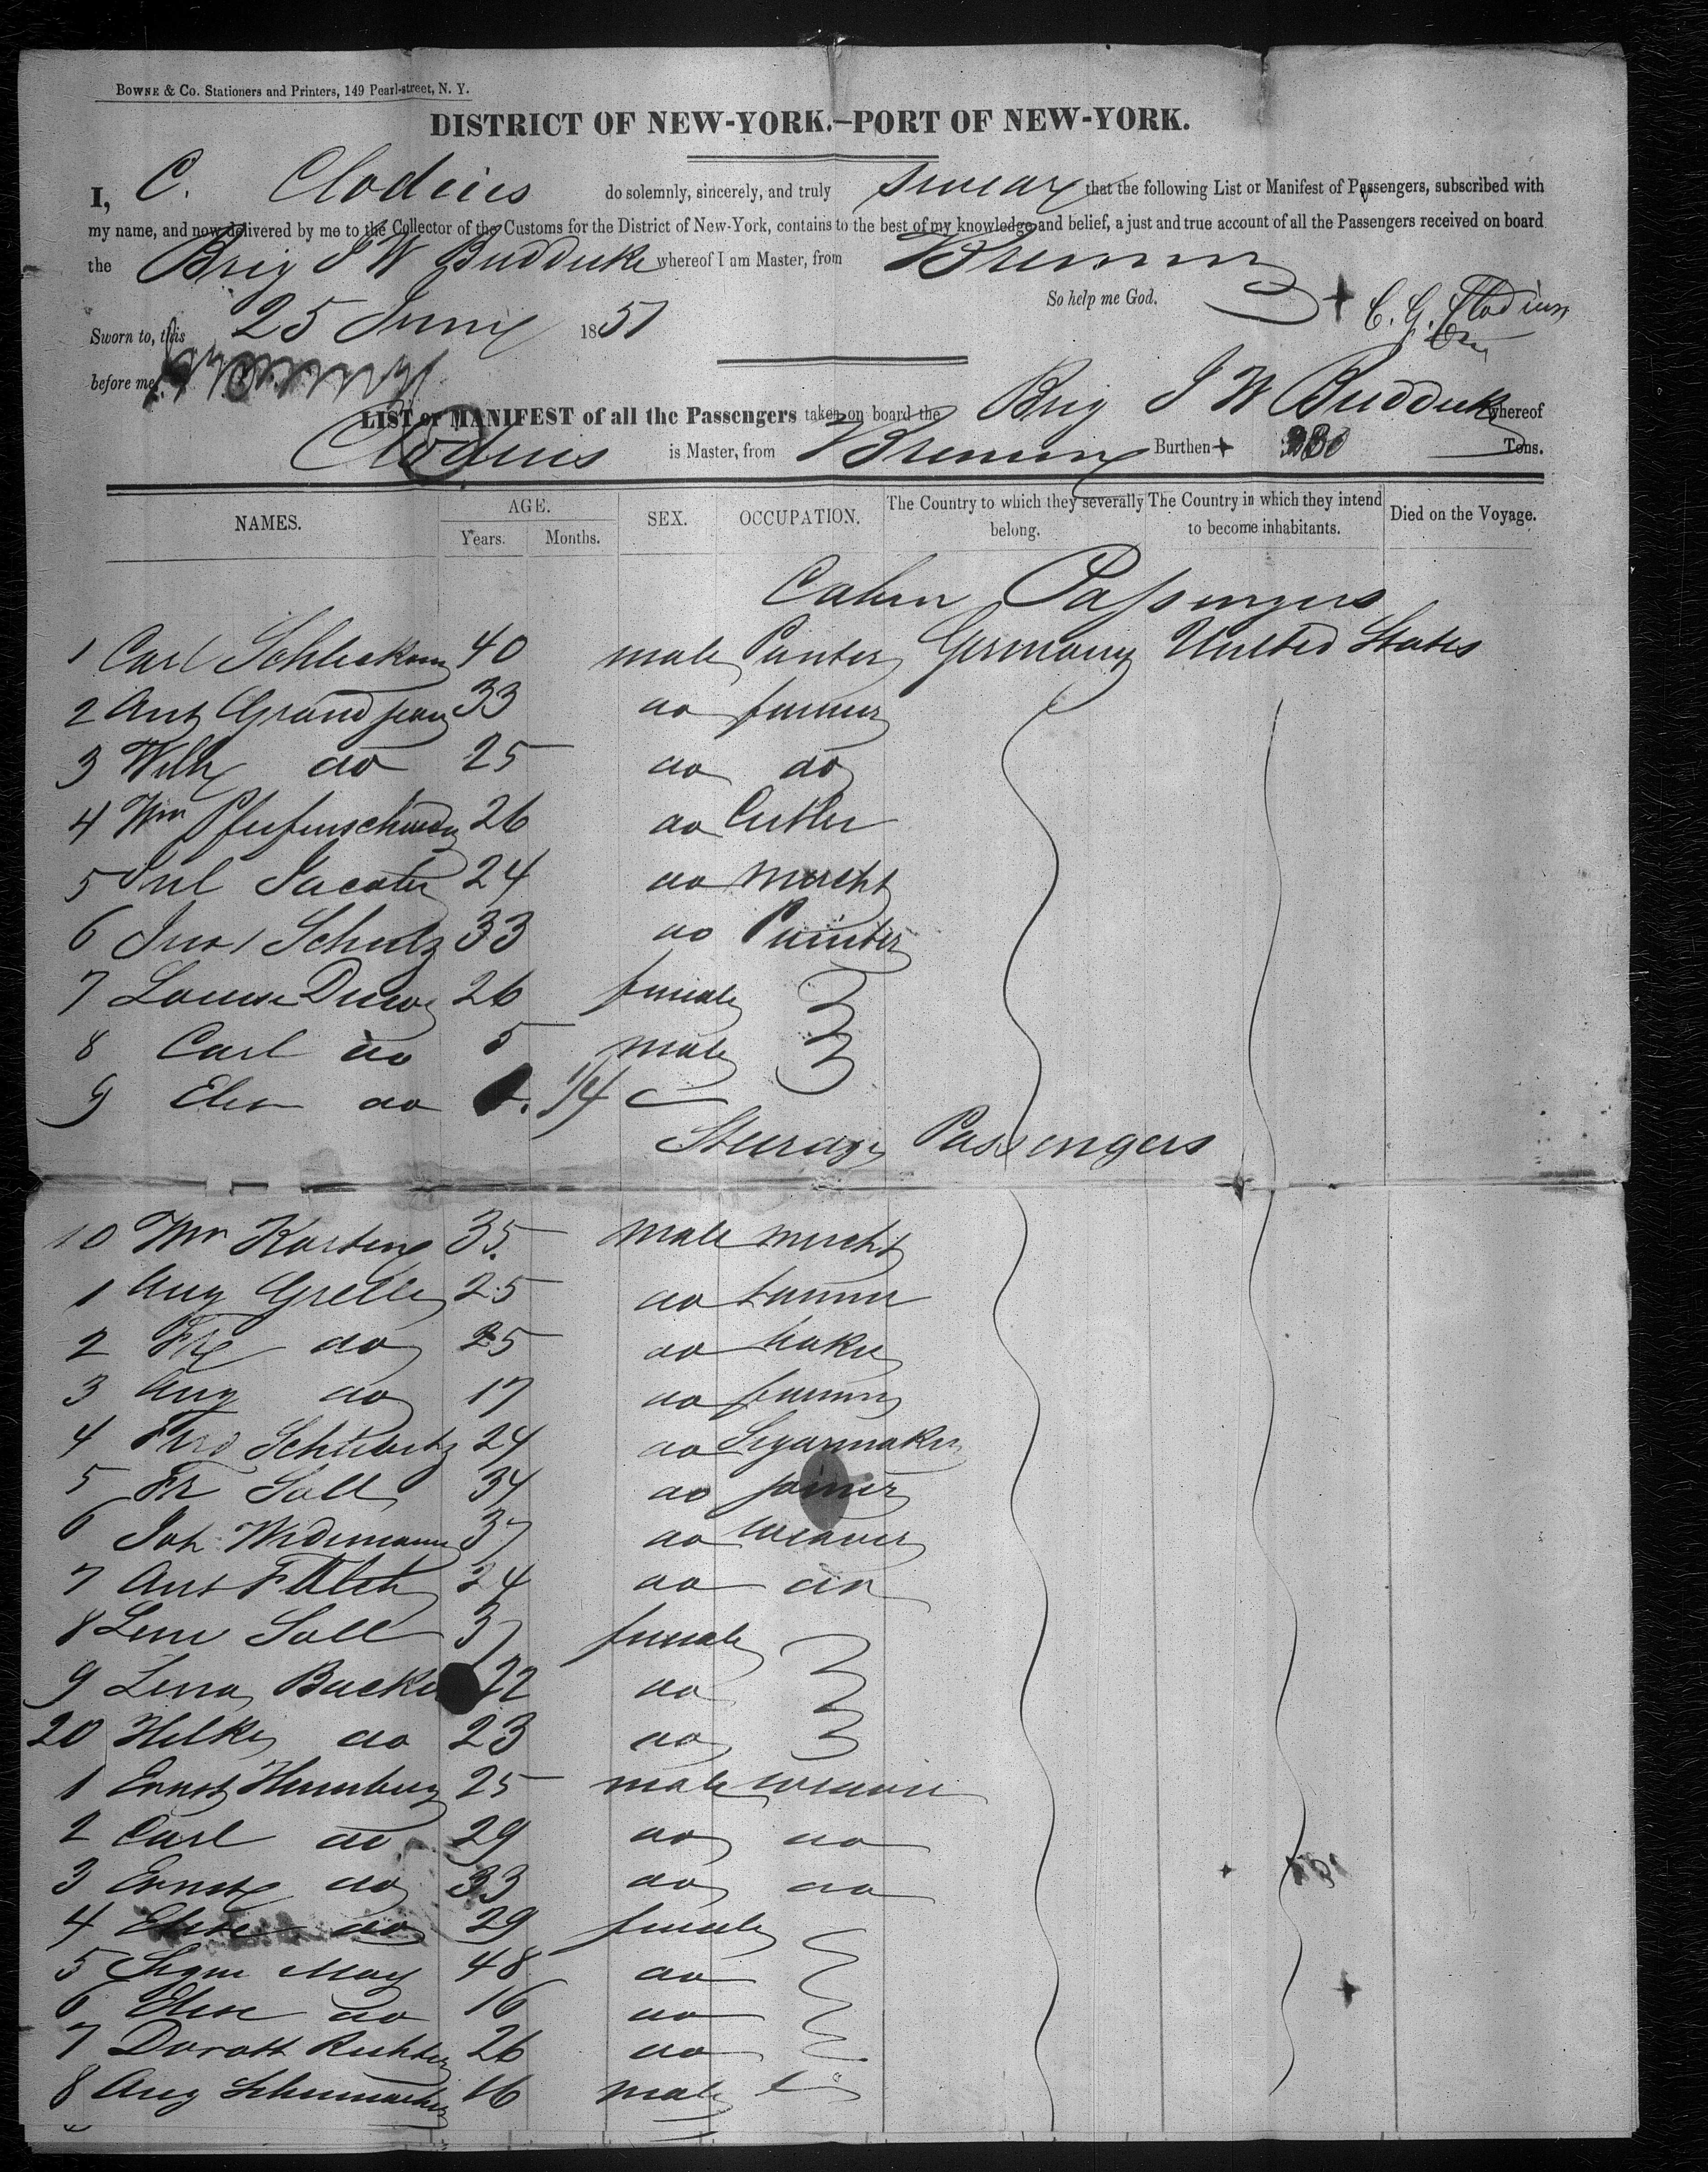 BOWNE & Co. Stationers and Printers, 149 Pearl-street, N. Y.
DISTRICT OF NEW-YORK.—PORT OF NEW-YORK.
I, C. Clodius do solemnly, sincerely, and truly swear that the following List or Manifest of Passengers, subscribed with
my name, and now delivered by me to the Collector of the Customs for the District of New-York, contains to the best of my knowledge and belief, a just and true account of all the Passengers received on board
the Brig J W Budduke whereof I am Master, from Bremen
So help me God. C. G. Clodius
Sworn to, this 25 June 1851
before me,
LIST or MANIFEST of all the Passengers taken on board the Brig J W Budduke whereof
Clodius is Master, from Bremen Burthen Tons.
NAMES. AGE. Years. Months. SEX. OCCUPATION. The Country to which they severally belong. The Country in which they intend to become inhabitants. Died on the Voyage.
Cabin Passengers
1 Carl 40 male Germany United States
2 Ant Grandjean 33 do farmer
3 Wilh do 25 do do
4 Wm 26 do Cutler
5 Jul 24 do mercht
6 Schulz 33 do Painter
7 Louise 26 female
8 Carl do 5 male
9 do
Steerage Passengers
10 Wm Karteng 35 male mercht
1 Aug Grelle 25 do
2 do 25 do baker
3 Aug do 17 do farmer
4 Ferd 24 do Segarmaker
5 Fr Soll 34 do joiner
6 Joh Widemann 37 do weaver
7 Ant 24 do do
8 Soll 37 female
9 Lena 22 do
20 do 23 do
1 Ernst 25 male weaver
2 Carl do 29 do do
3 Ernst do 33 do do
4 Elise do 29 female
5 May 48 do
6 Elise do 16 do
7 Doroth Richter 26 do
8 Aug Schumacher 16 male